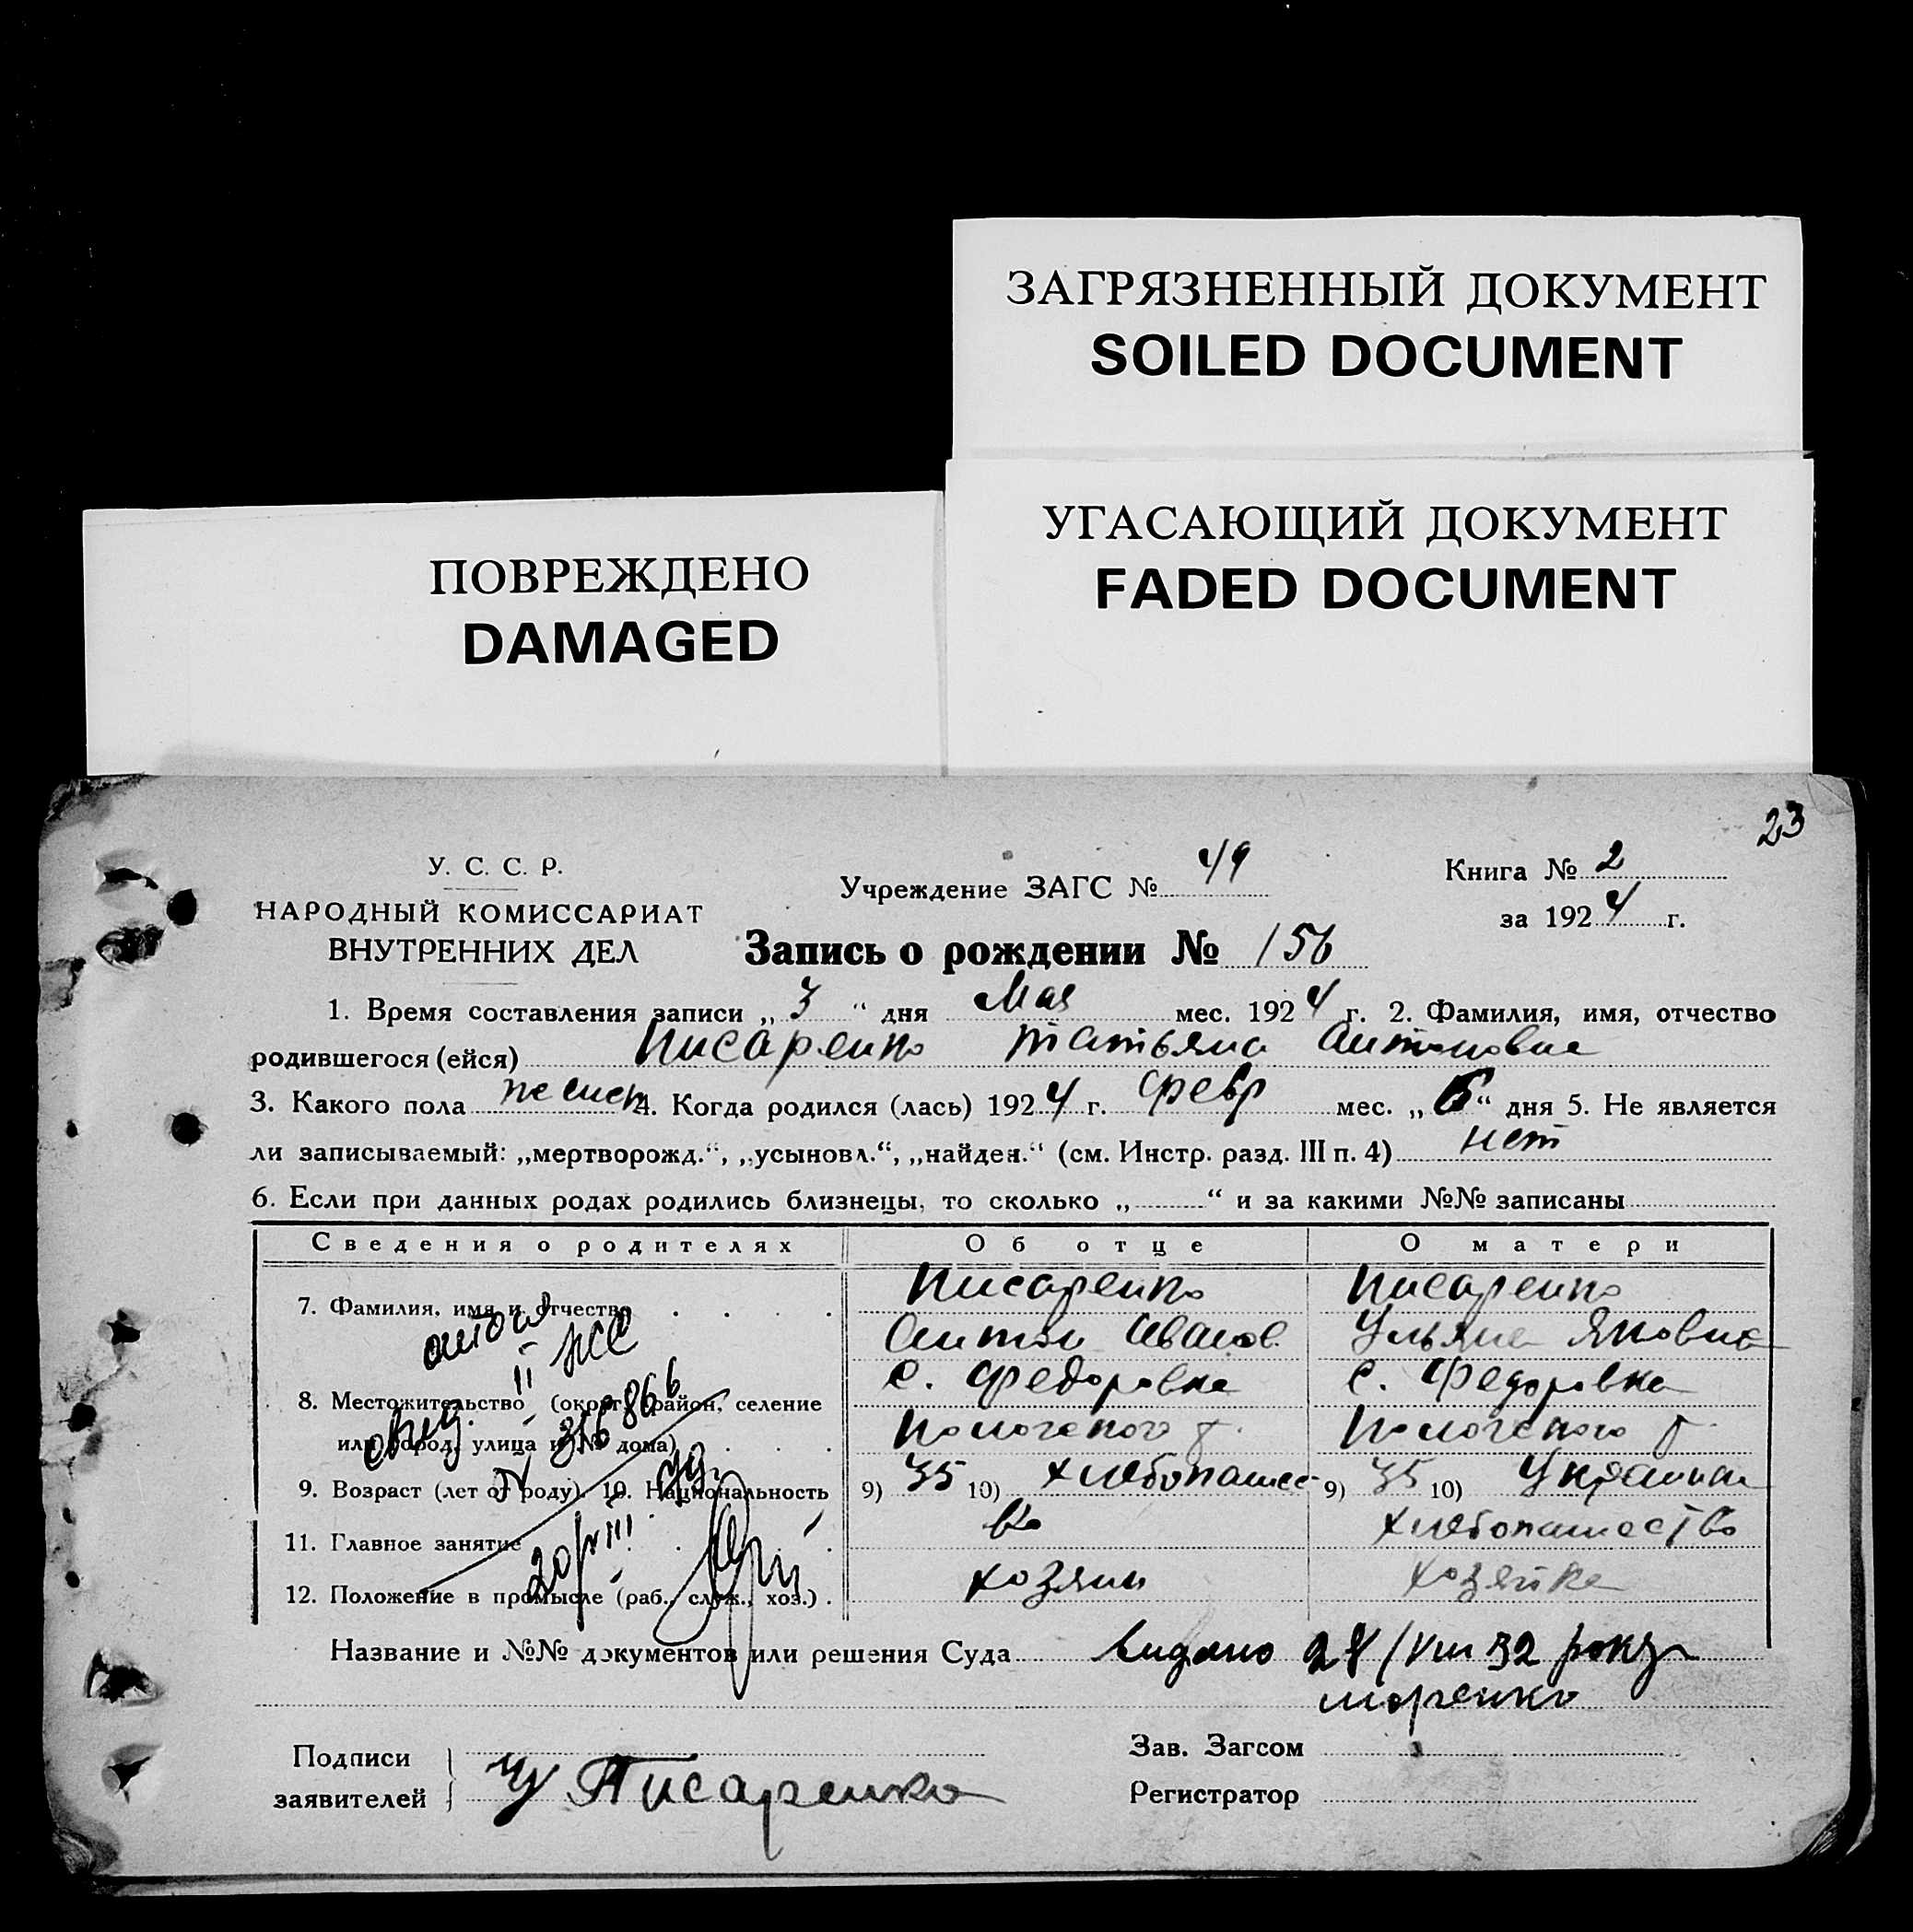 ЗАГРЯЗНЕННЫЙ ДОКУМЕНТ
SOILED DOCUMENT
УГАСАЮЩИЙ ДОКУМЕНТ
FADED DOCUMENT
ПОВРЕЖДЕНО
DAMAGED
23
У. С. С. Р.
НАРОДНЫЙ КОМИССАРИАТ
ВНУТРЕННИХ ДЕЛ
Учреждение ЗАГС № 49
Книга № 2
за 1924 г.
Запись о рождении № 156
1. Время составления записи „ 3 “ дня Мая мес. 1924 г. 2. Фамилия, имя, отчество
родившегося (ейся) Писаренко Татьяна Антоновна
3. Какого пола женск 4. Когда родился (лась) 1924 г. февр мес. „ 6 “ дня 5. Не является
ли записываемый: „мертворожд.“, „усыновл.“, „найден.“ (см. Инстр. разд. III п. 4) нет
6. Если при данных родах родились близнецы, то сколько „ “ и за какими №№ записаны
Сведения о родителях Об отце О матери
7. Фамилия, имя и отчество Писаренко Писаренко
Антон Иванов. Ульяна Яковна
8. Местожительство (округ, район, селение с. Федоровка с. Федоровка
или город, улица и № дома) Пологского р. Пологского р.
9. Возраст (лет от роду). 10. Национальность 9) 35 10) хлебопашес 9) 35 10) Украинка
11. Главное занятие во хлебопашество
12. Положение в промысле (раб., служ., хоз.) хозяин хозяйка
Название и №№ документов или решения Суда видано 28/VIII 32 року
Подписи
заявителей У Писаренко
Зав. Загсом
Регистратор